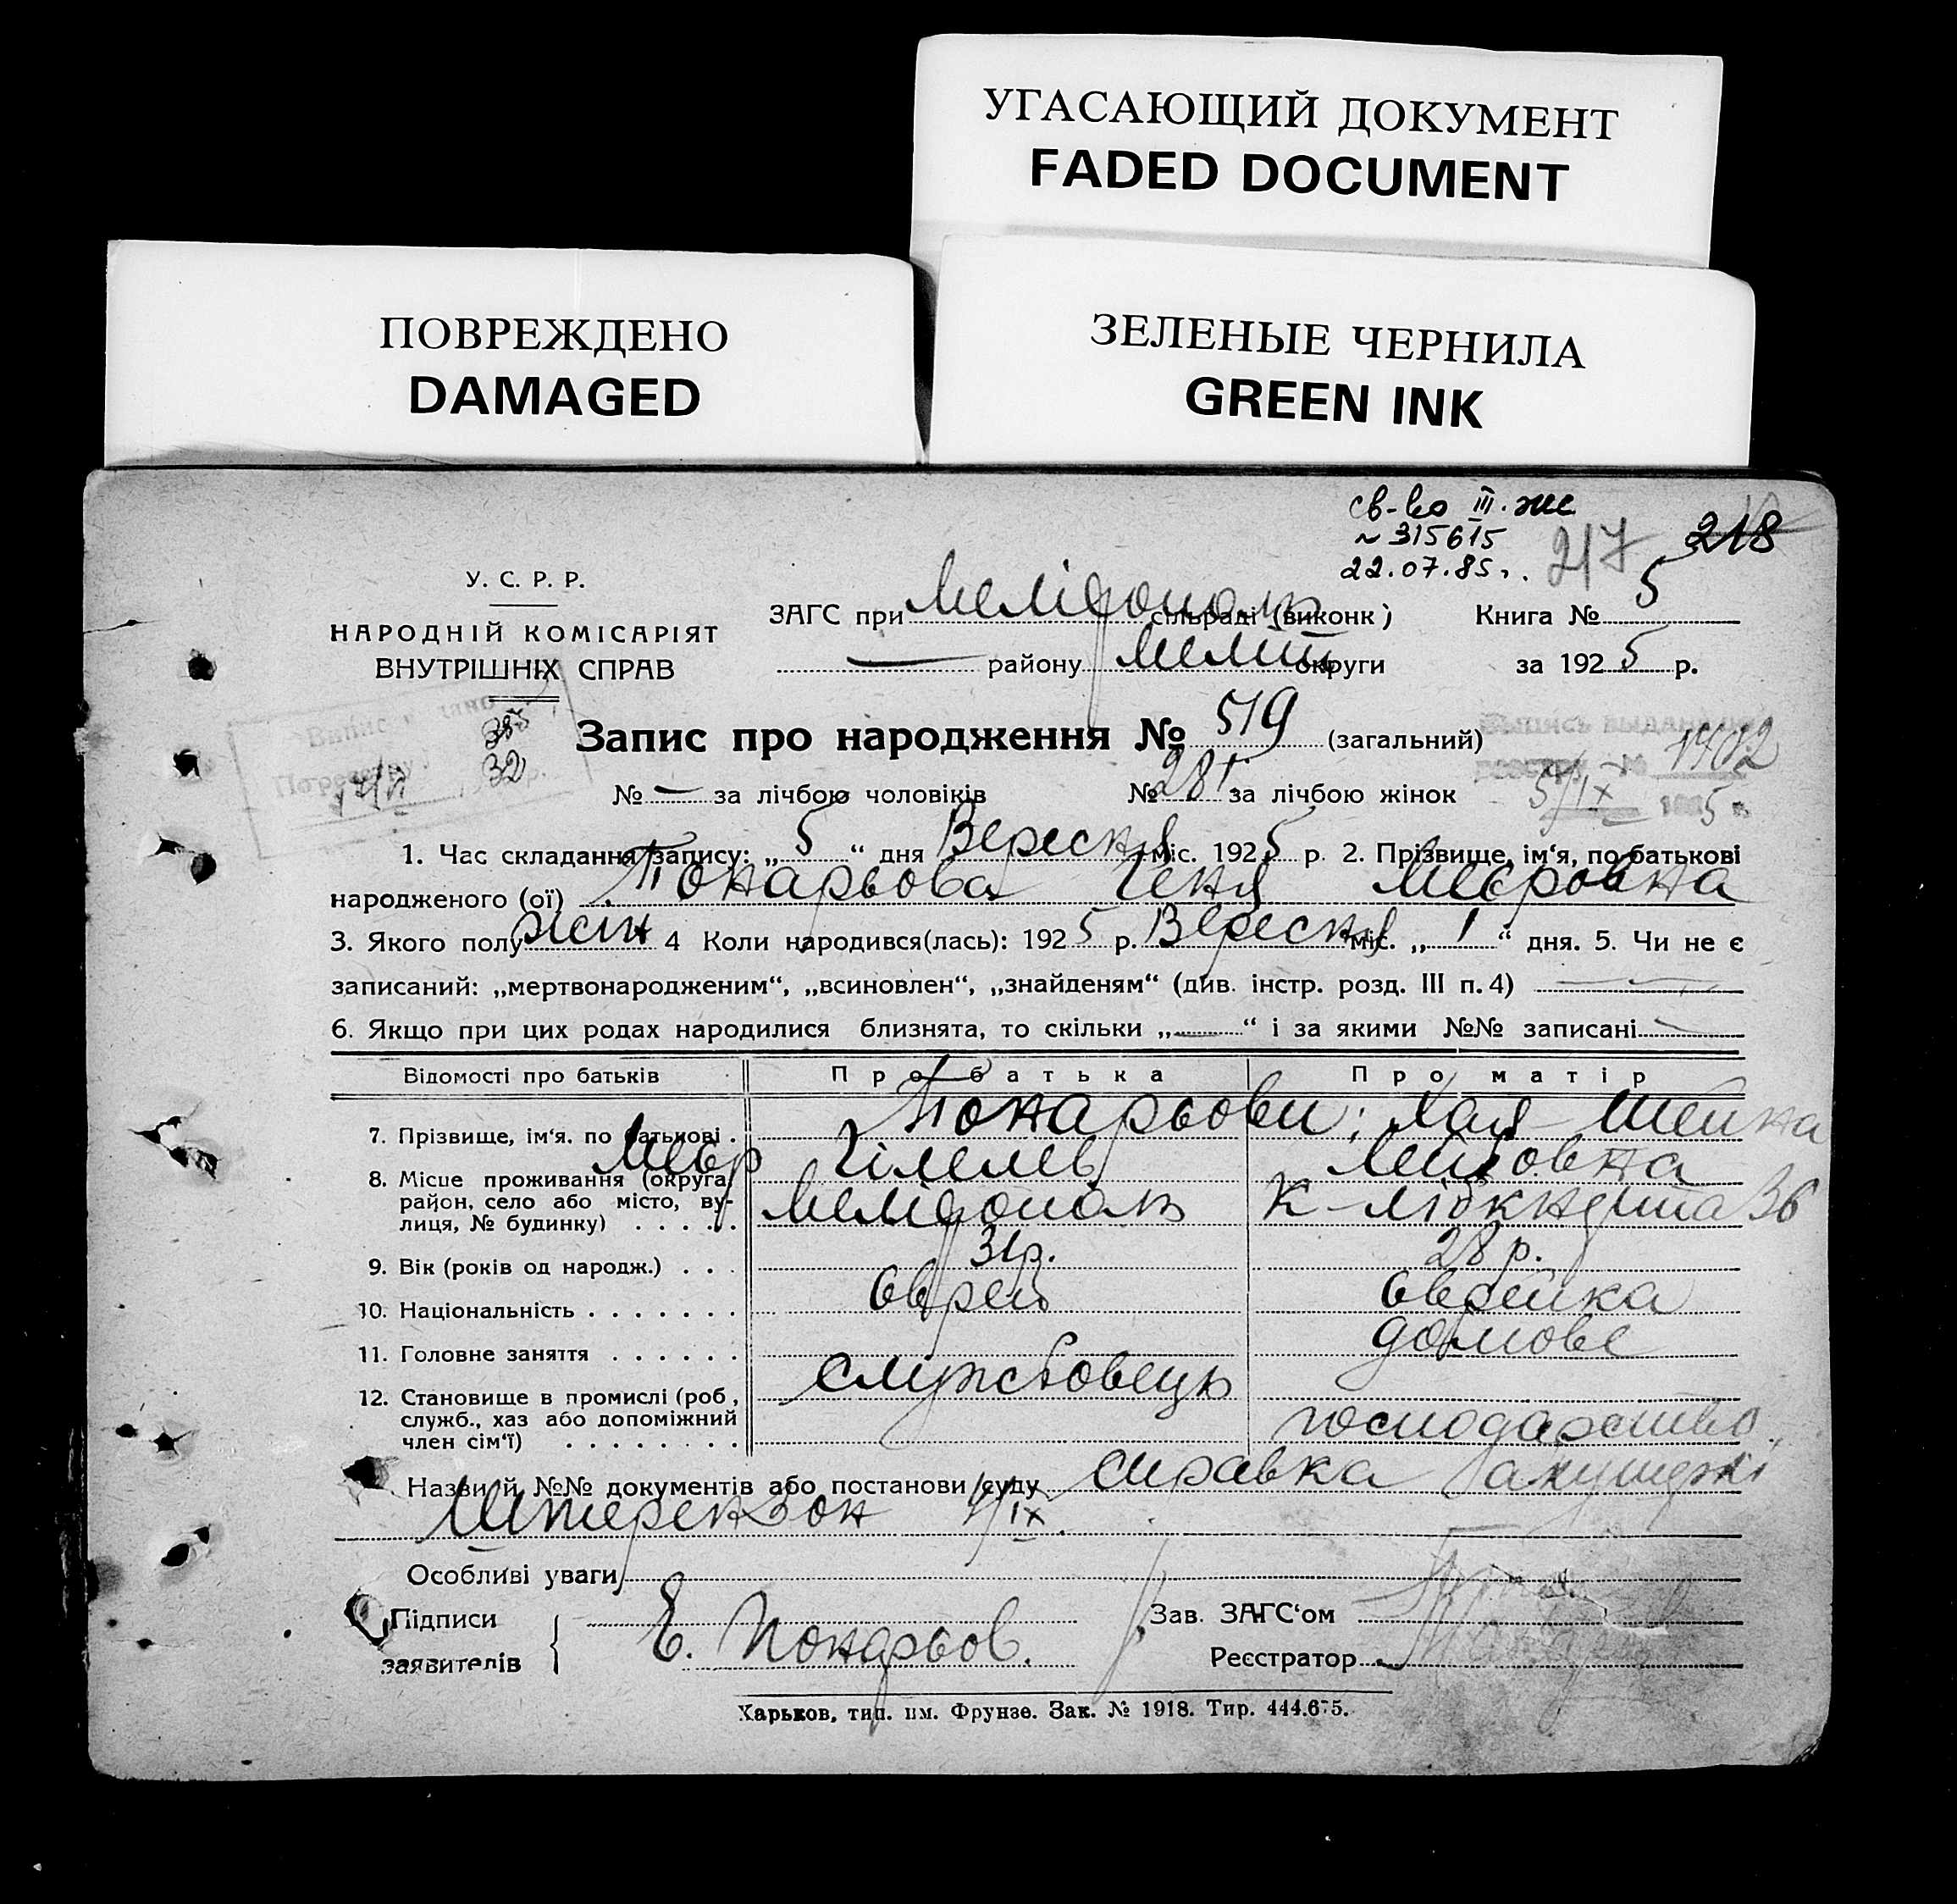 УГАСАЮЩИЙ ДОКУМЕНТ
FADED DOCUMENT
ПОВРЕЖДЕНО
DAMAGED
ЗЕЛЕНЫЕ ЧЕРНИЛА
GREEN INK
св-во III-жс
~ 315615
22.07.85г.
217 218
У. С. Р. Р.
НАРОДНІЙ КОМІСАРІЯТ
ВНУТРІШНІХ СПРАВ
ЗАГС при Мелітополь сільраді (виконк) Книга № 5
— району Меліт округи за 1925 р.
Запис про народження № 519 (загальний)
№ — за лічбою чоловіків № 281 за лічбою жінок
Выпись выдана
1402
5/IX
32
1. Час складання запису: „5“ дня Вересня міс. 1925 р. 2. Прізвище, ім‘я, по батькові
народженого (ої) Понарьова Геня Меєровна
3. Якого полу жін 4 Коли народився(лась): 1925 р. Вересня міс. „1“ дня. 5. Чи не є
записаний: „мертвонародженим“, „всиновлен“, „знайденям“ (див. інстр. розд. III п. 4) —
6. Якщо при цих родах народилися близнята, то скільки „—“ і за якими №№ записані —
Відомості про батьків Про батька Про матір
7. Прізвище, ім‘я, по батькові . Понарьови: Хая-Шейна
Меєр Гілелев Лейбовна
8. Місце проживання (округа,
район, село або місто, ву-
лиця, № будинку) . . . . . Мелітополь К-Лібкнехта 36
9. Вік (років од народж.) . . . 31р. 28 р.
10. Національність . . . . . . . Єврей Єврейка
11. Головне заняття . . . . . . домове
12. Становище в промислі (роб.,
служб., хаз або допоміжний
член сім‘ї) . . . . . . . . службовець господарство
Назви й №№ документів або постанови суду справка акушерки
Штерензон 4/IX
Особливі уваги
Підписи
заявителів { Е. Понарьов. Зав. ЗАГС‘ом
Реєстратор
Харьков, тип. им. Фрунзе. Зак. № 1918. Тир. 444.675.